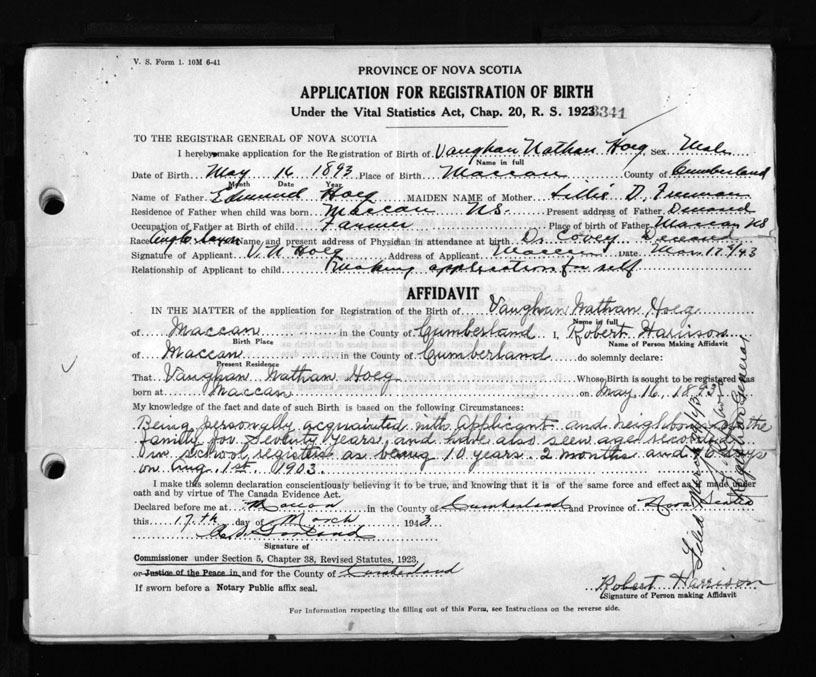 V. S. Form 1. 10M 6-41
PROVINCE OF NOVA SCOTIA
APPLICATION FOR REGISTRATION OF BIRTH
Under the Vital Statistics Act, Chap. 20, R. S. 1923 3341
TO THE REGISTRAR GENERAL OF NOVA SCOTIA
I hereby make application for the Registration of Birth of Vaughan Nathan Hoeg Sex Male
Name in full
Date of Birth May 16 1893 Place of Birth Maccan County of Cumberland
Month Date Year
Name of Father Edmund Hoeg MAIDEN NAME of Mother Lillie D. Freeman
Residence of Father when child was born Maccan NS. Present address of Father Deceased
Occupation of Father at Birth of child Farmer Place of birth of Father Maccan NS
Race Anglo Saxon Name and present address of Physician in attendance at birth Dr Covey Deceased
Signature of Applicant V. N. Hoeg Address of Applicant Maccan Date Mar 17th/43
Relationship of Applicant to child Making application for self
AFFIDAVIT
IN THE MATTER of the application for Registration of the Birth of Vaughan Nathan Hoeg
Name in full
of Maccan in the County of Cumberland I, Robert Harrison
Birth Place Name of Person Making Affidavit
of Maccan in the County of Cumberland do solemnly declare:
Present Residence
That Vaughan Nathan Hoeg Whose Birth is sought to be registered was
born at Maccan on May 16, 1893
My knowledge of the fact and date of such Birth is based on the following Circumstances:
Being personally acquainted with applicant and neighbour of the
family for seventy years, and have also seen age recorded
in school registers as being 10 years 2 months and days
on Aug. 1st. 1903.
I make this solemn declaration conscientiously believing it to be true, and knowing that it is of the same force and effect as if made under
oath and by virtue of The Canada Evidence Act.
Declared before me at Maccan in the County of Cumberland and Province of Nova Scotia
this 17th day of March 1943
Signature of
Commissioner under Section 5, Chapter 38, Revised Statutes, 1923,
or Justice of the Peace in and for the County of Cumberland
If sworn before a Notary Public affix seal.
Robert Harrison
Signature of Person making Affidavit
For Information respecting the filling out of this Form, see Instructions on the reverse side.
Filed March
Registrar General